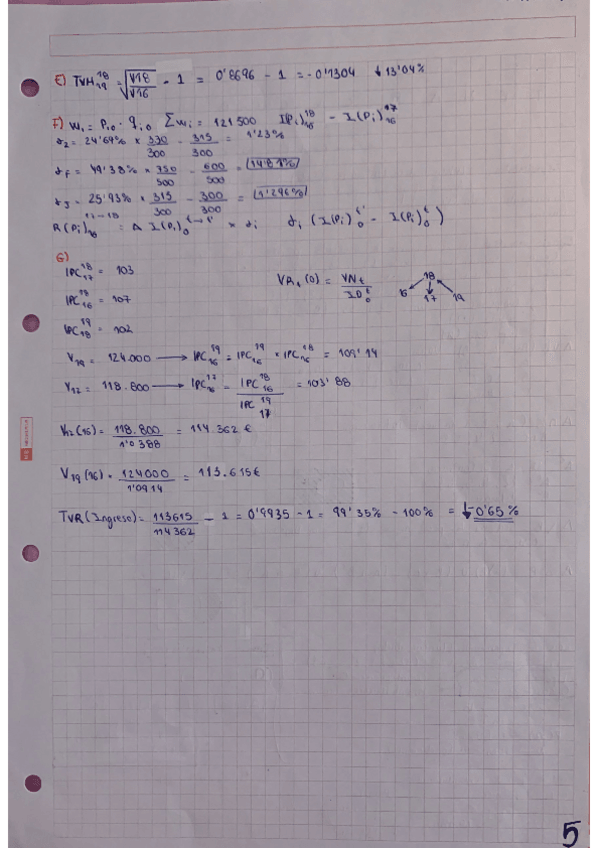 E) TVM 18 19 = √V18 / √V16 - 1 = 0'8696 - 1 = -0'1304 ↓ 13'04%
F) Wi = Pio · qio ∑wi = 121500 I(Pi) 18 16 - I(Pi) 17 16
α2 = 24'69% × 330/300 - 315/300 = 1'23%
αF = 49'38% × 750/500 - 600/500 = 14'81%
αJ = 25'93% × 315/300 - 300/300 = 1'296%
R(Pi) 17-18 16 = Δ I(Pi) t-t' 0 × αi αi (I(Pi) t' 0 - I(Pi) t 0)
G)
IPC 18 17 = 103
VR, (0) = VNt / ID t 0
18
16 17 19
IPC 18 16 = 107
IPC 19 18 = 102
V19 = 124.000 → IPC 19 16 = IPC 19 16 × IPC 18 = 109'14
V12 = 118.800 → IPC 17 16 = IPC 18 16 / IPC 19 17 = 103'88
V12(16) = 118.800 / 1'0388 = 114.362 €
V19(16) = 124000 / 1'0914 = 113.615€
TVR(Ingreso) = 113615 / 114362 - 1 = 0'9935 - 1 = 99'35% - 100% = ↓-0'65%
5